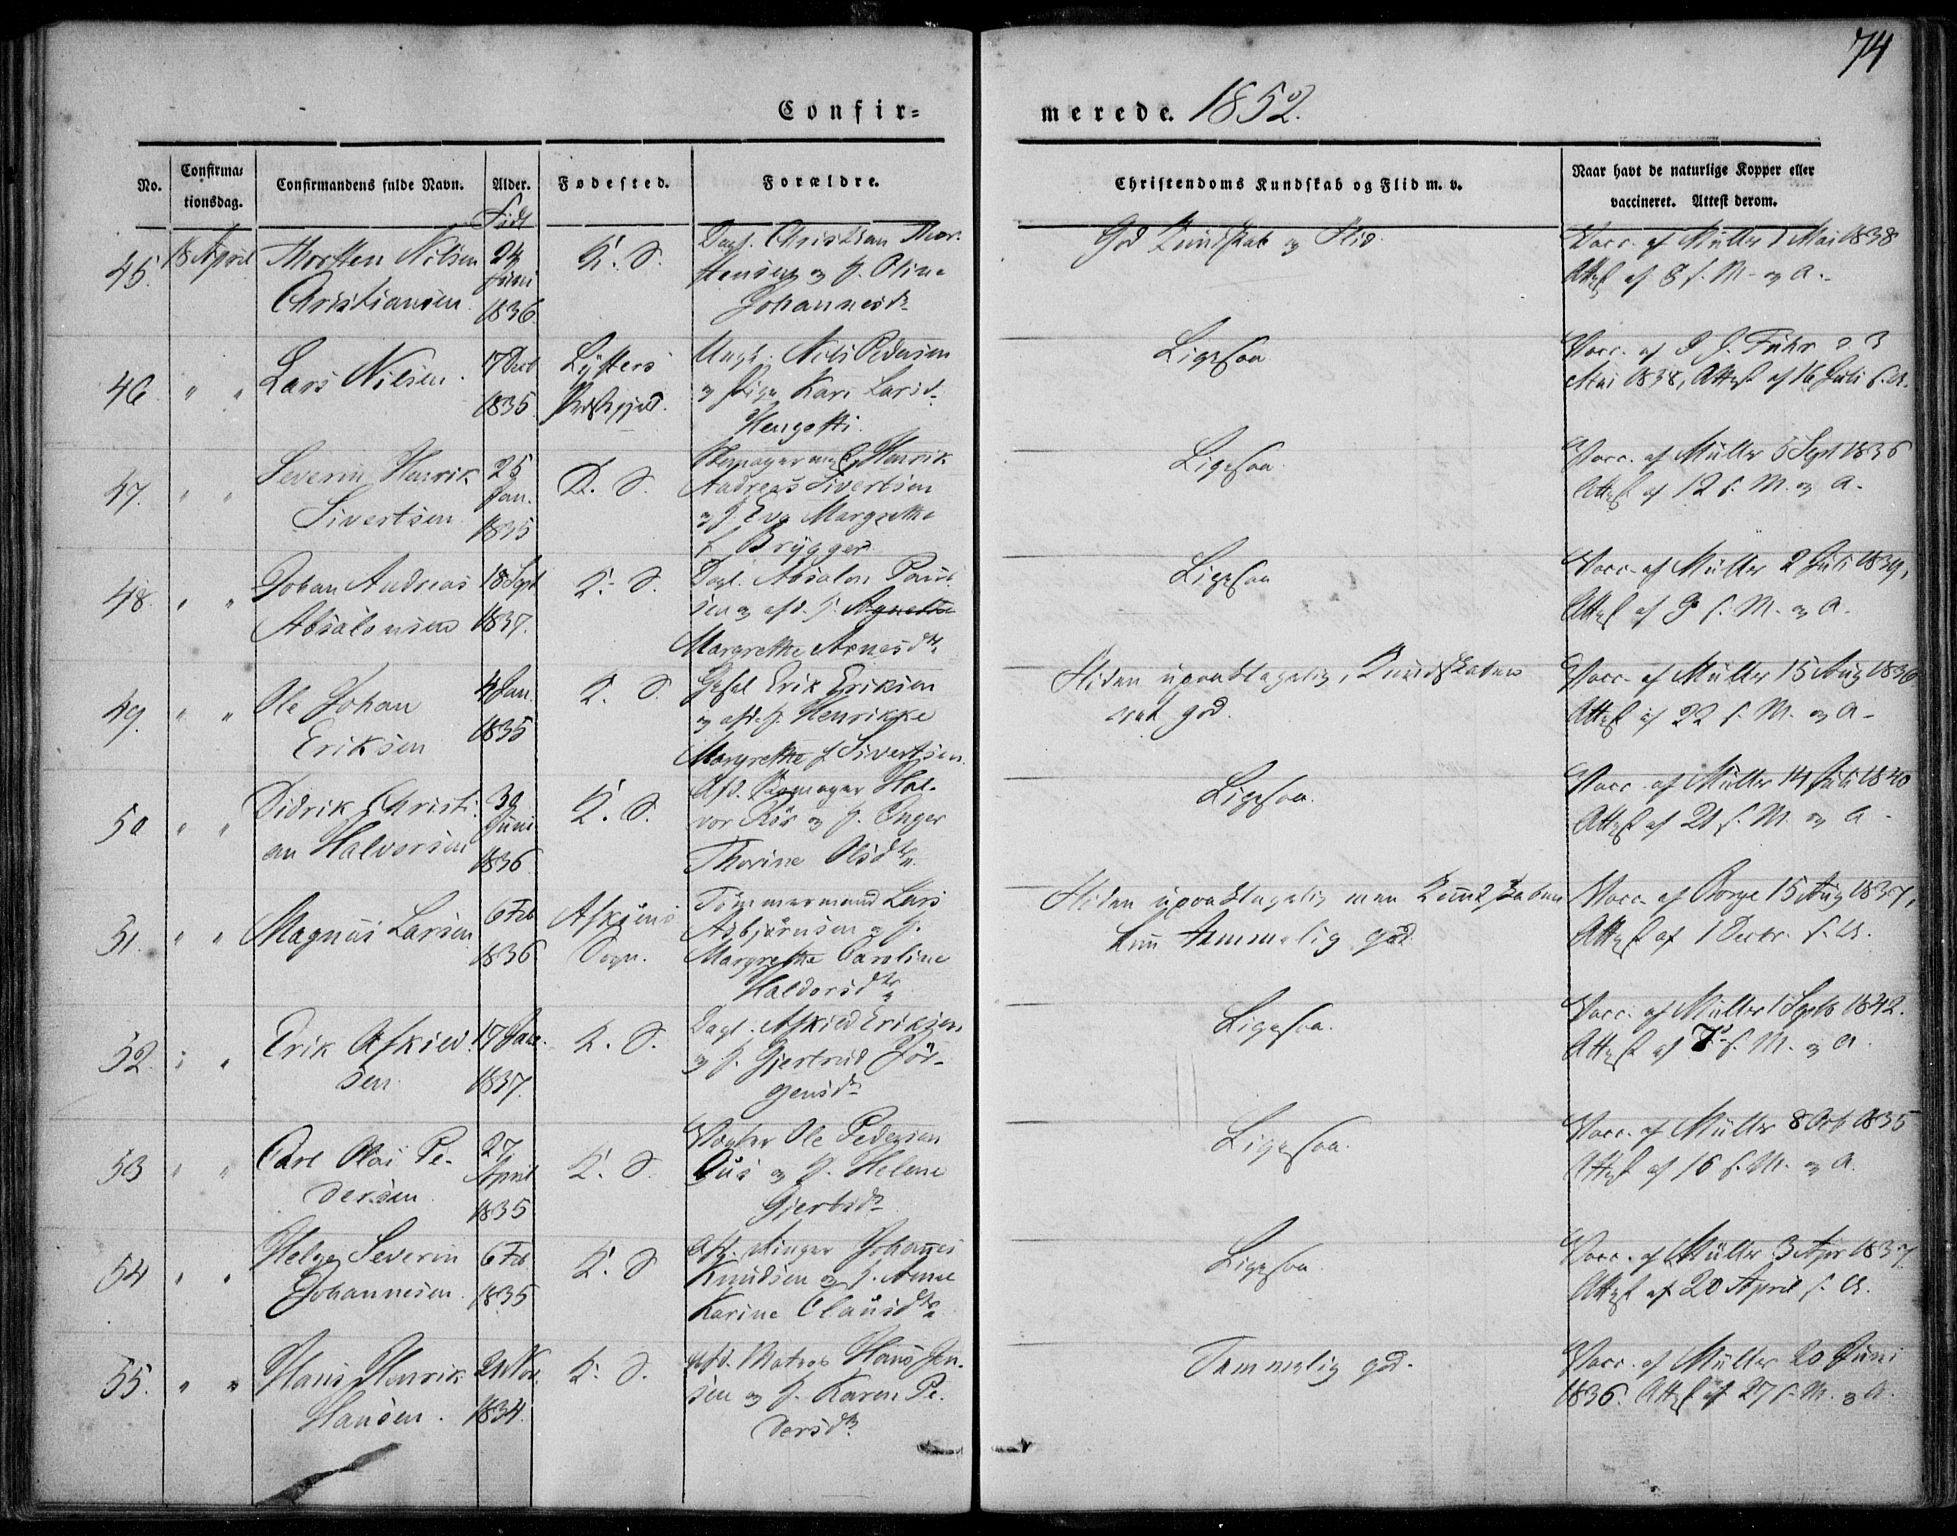 74
Confirmerede. 1852.
No. Confirmationsdag. Confirmandens fulde Navn. Alder. Fødested. Forældre. Christendoms Kundskab og Flid m. v. Naar havt de naturlige Kopper eller vaccineret. Attest derom.
Født
45. 18 April Morten Nilsen
Christiansen
24
Juni
1836.
K. S.
Dagl. Christian Mor-
tensen og H. Oline
Johannesdr
God Kundskab og Flid.
Vacc. af Müller 1 Mai 1838
Attest af 8 s. M. og A.
46. " " Lars Nilsen.
17 Decb
1835.
Lysters
Præstegjeld.
Ungk. Nils Pedersen
og Pige Kari Larsd.
Ligesaa
Vacc. af J. Führ d 3
Mai 1838, Attest af 16 Juli s. A.
47. " " Severin Henrik
Sivertsen
25
Jan.
1835
D. S.
Henrik
Andreas Sivertsen
og H. Eva Margrethe
f. Brygger
Ligesaa.
Vacc. af Müller 5 Sept 1836
Attest af 12 s. M. og A.
48. " " Johan Andreas
Absalonsen
18 Sept
1837.
K. S.
Dagl. Absalon Paul-
sen og afd. H. Agnethe
Margrethe Arnesdtr
Ligesaa
Vacc. af Müller 2 Juli 1839,
Attest af 9 s. M. og A.
49. " " Ole Johan
Eriksen
4 Jan.
1835
K. S.
Gesel Erik Eriksen
og afd. H. Henrikke
Margrethe f. Sivertsen.
Fliden upaaklagelig, Kundskaben
god.
Vacc. af Müller 15 Aug 1836
Attest af 22 s. M. og A.
50 " " Didrik Christi-
an Halvorsen
30
Juni
1836.
K. S.
Afd. Hal-
vor Rör og H. Inger
Thorine Olsdtr
Ligesaa.
Vacc. af Müller 14 Juli 1840
Attest af 21 s. M. og A.
51. " " Magnus Larsen
6 Feb
1836
Askøens
Sogn.
Tømmermand Lars
Asbjørnsen og H.
Margrethe Caroline
Haldorsdtr
Fliden upaaklagelig men Kundskaben
kun temmelig god.
Vacc. af Borge 15 Aug 1837,
Attest af 1 Decbr. s. A.
52. " " Erik Askied-
sen.
17 Jan.
1837.
K. S.
Dagl. Askied Eriksen
og H. Gjertrud Jör-
gensdr
Ligesaa.
Vacc. af Müller 1 Septb 1842.
Attest af 7 s. M. og A.
53 " " Carl Olai Pe-
dersen.
27
April
1835
K. S.
Vægter Ole Pedersen
Duus og H. Helene
Gjertsdr
Ligesaa.
Vacc. af Müller 8 Octb 1835
Attest af 16 s. M. og A.
54 " " Helge Severin
Johannesen.
6 Feb
1835
K. S
Afd. Johannes
Knudsen og H. Anne
Karine Clausdtr
Ligesaa.
Vacc. af Müller 3 Apr 1837
Attest af 20 April s. A.
55. " " Hans Henrik
Hansen.
Nov
1834.
K. S.
Afd. Matros Hans Jen-
sen og H. Karen Pe-
dersdr
Temmelig god.
Vacc. af Müller 20 Juni
1836. Attest af 27 s. M. og A.